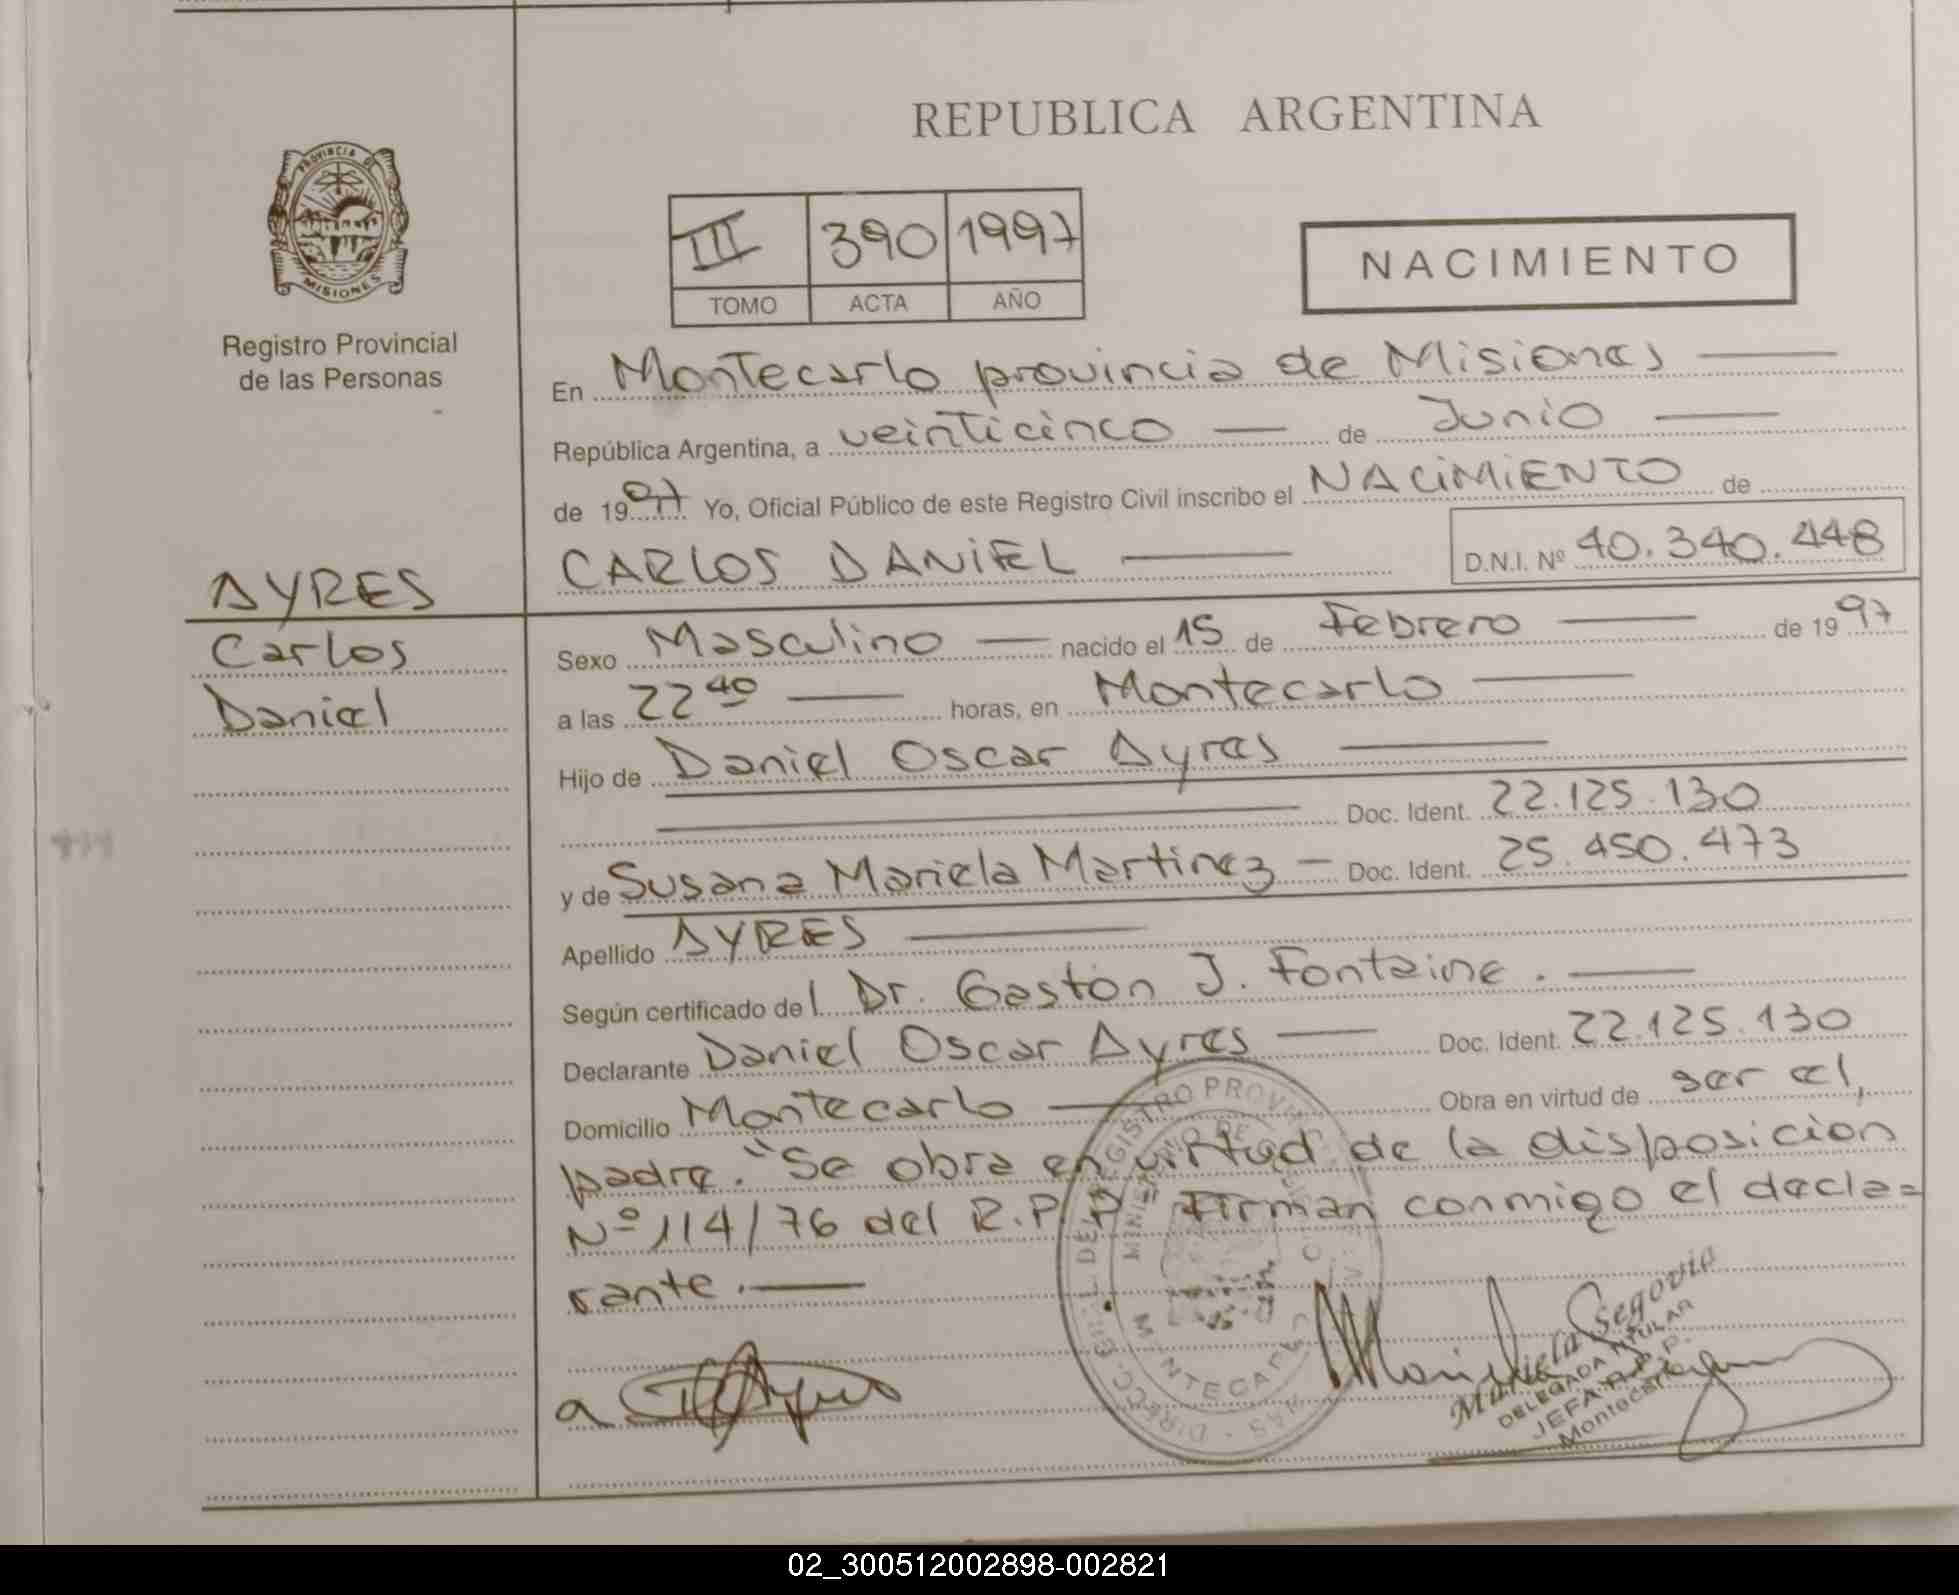 REPUBLICA ARGENTINA
PROVINCIA DE
MISIONES
Registro Provincial
de las Personas
III 390 1997
TOMO ACTA AÑO
NACIMIENTO
En Montecarlo provincia de Misiones
República Argentina, a veinticinco de Junio
de 1997 Yo, Oficial Público de este Registro Civil inscribo el NACIMIENTO de
CARLOS DANIEL D.N.I. Nº 40.340.448
AYRES
Carlos
Daniel
Sexo Masculino nacido el 15 de Febrero de 1997
a las 22 40 horas, en Montecarlo
Hijo de Daniel Oscar Ayres
Doc. Ident. 22.125.130
y de Susana Mariela Martinez Doc. Ident. 25.450.473
Apellido AYRES
Según certificado del Dr. Gastón J. Fontaine.
Declarante Daniel Oscar Ayres Doc. Ident. 22.125.130
Domicilio Montecarlo Obra en virtud de ser el
padre. "Se obra en virtud de la disposicion
Nº 114/76 del R.P.P. Firman conmigo el decla=
rante.
Mariela Segovia
DELEGADA TITULAR
JEFA R.P.P.
Montecarlo
02_300512002898-002821